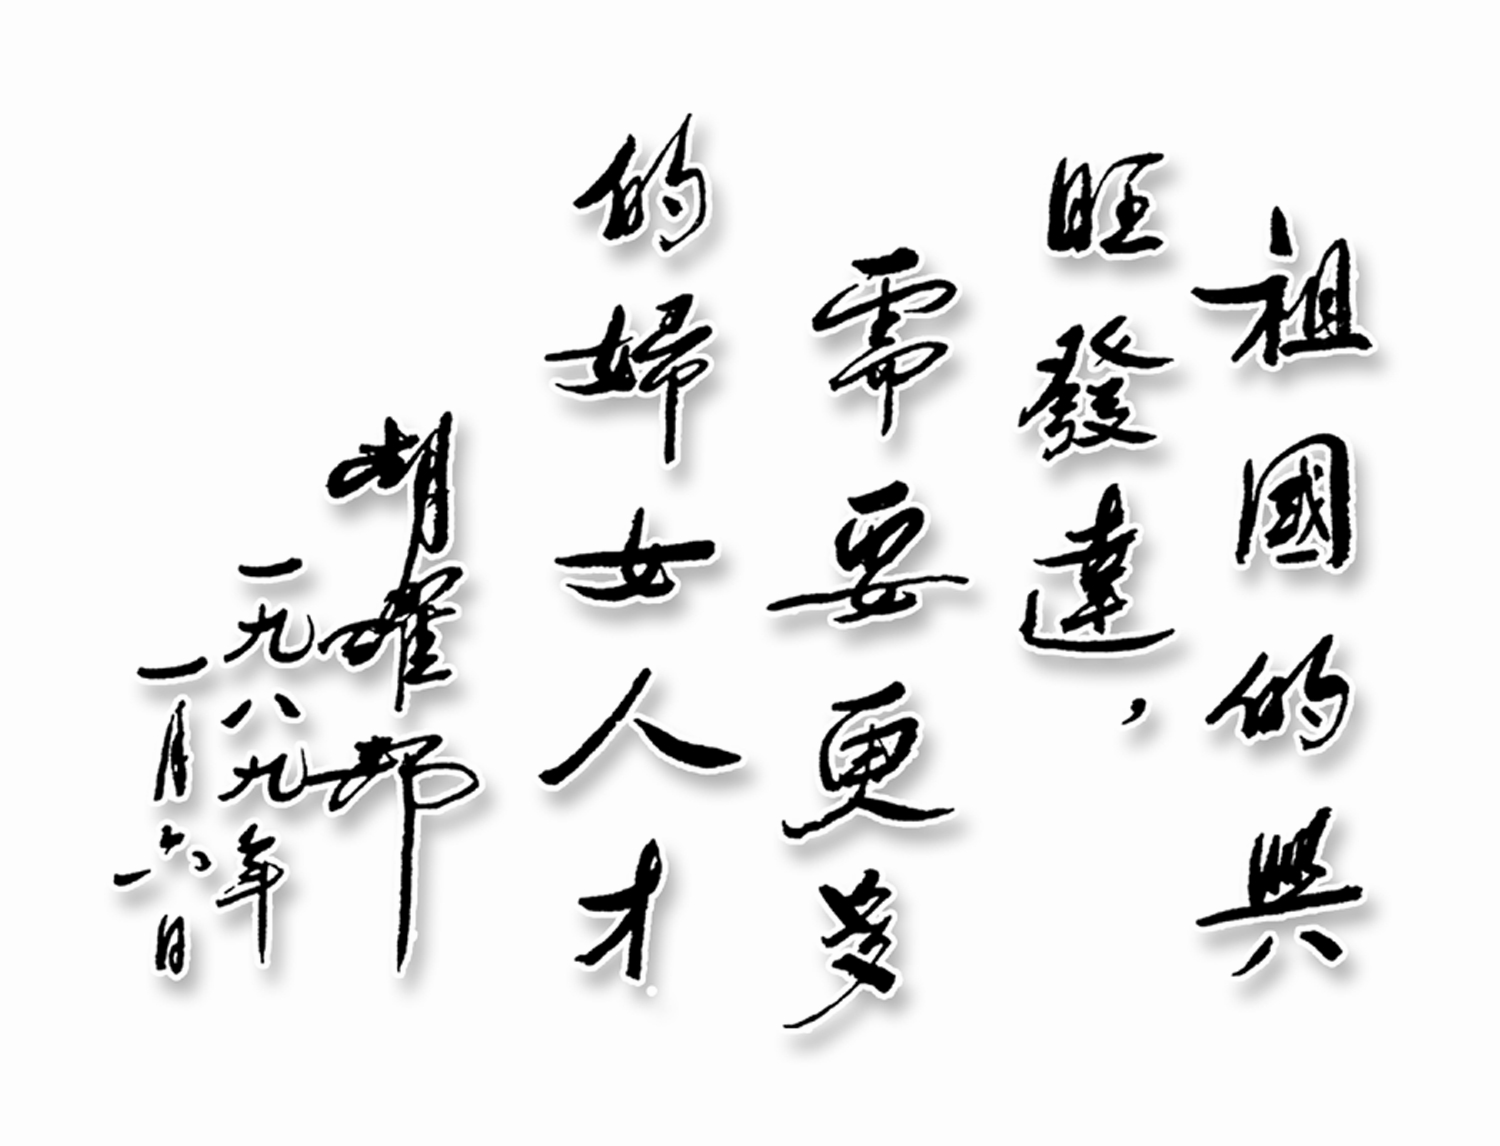 祖國的興
旺發達，
需要更多
的婦女人才
胡耀邦
一九八九年
一月六日